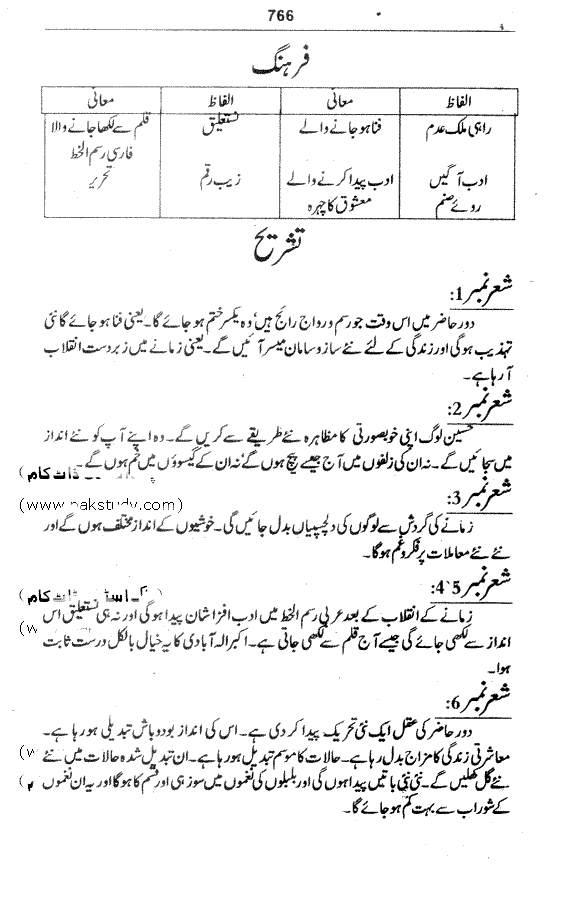 766
فرہنگ
الفاظ معانی الفاظ معانی
راہی ملک عدم فنا ہو جانے والے نستعلیق قلم سے لکھا جانے والا
فارسی رسم الخط
ادب آگیں ادب پیدا کرنے والے زیب رقم تحریر
روئے صنم معشوق کا چہرہ
تشریح
شعر نمبر 1:
دور حاضر میں اس وقت جو رسم و رواج رائج ہیں' وہ یکسر ختم ہو جائے گا۔ یعنی فنا ہو جائے گا نئی
تہذیب ہوگی اور زندگی کے لئے نئے ساز و سامان میسر آئیں گے۔ یعنی زمانے میں زبردست انقلاب
آ رہا ہے۔
شعر نمبر 2:
حسین لوگ اپنی خوبصورتی کا مظاہرہ نئے طریقے سے کریں گے۔ وہ اپنے آپ کو نئے انداز
میں سجائیں گے۔ نہ ان کی زلفوں میں آج جیسے پیچ ہوں گے' نہ ان کے گیسوؤں میں خم ہوں گے۔
ڈاٹ کام)
شعر نمبر 3:
(www.pakstudy.com)
زمانے کی گردش سے لوگوں کی دلچسپیاں بدل جائیں گی۔ خوشیوں کے انداز مختلف ہوں گے اور
نئے نئے معاملات پر فکر و غم ہوگا۔
شعر نمبر 4`5:
ڈاٹ کام)
زمانے کے انقلاب کے بعد عربی رسم الخط میں ادب افزا شان پیدا ہوگی اور نہ ہی نستعلیق اس
(w
انداز سے لکھی جائے گی جیسے آج قلم سے لکھی جاتی ہے۔ اکبر الہ آبادی کا یہ خیال بالکل درست ثابت
ہوا۔
شعر نمبر 6:
دور حاضر کی عقل ایک نئی تحریک پیدا کر دی ہے۔ اس کی انداز بود و باش تبدیلی ہو رہا ہے۔
(w
معاشرتی زندگی کا مزاج بدل رہا ہے۔ حالات کا موسم تبدیل ہو رہا ہے۔ ان تبدیل شدہ حالات میں نئے
نئے گل کھلیں گے۔ نئی نئی باتیں پیدا ہوں گی اور بلبلوں کی نغموں میں سوز ہی اور قسم کا ہوگا اور یہ ان نغموں
کے شور اب سے بہت کم ہو جائے گا۔